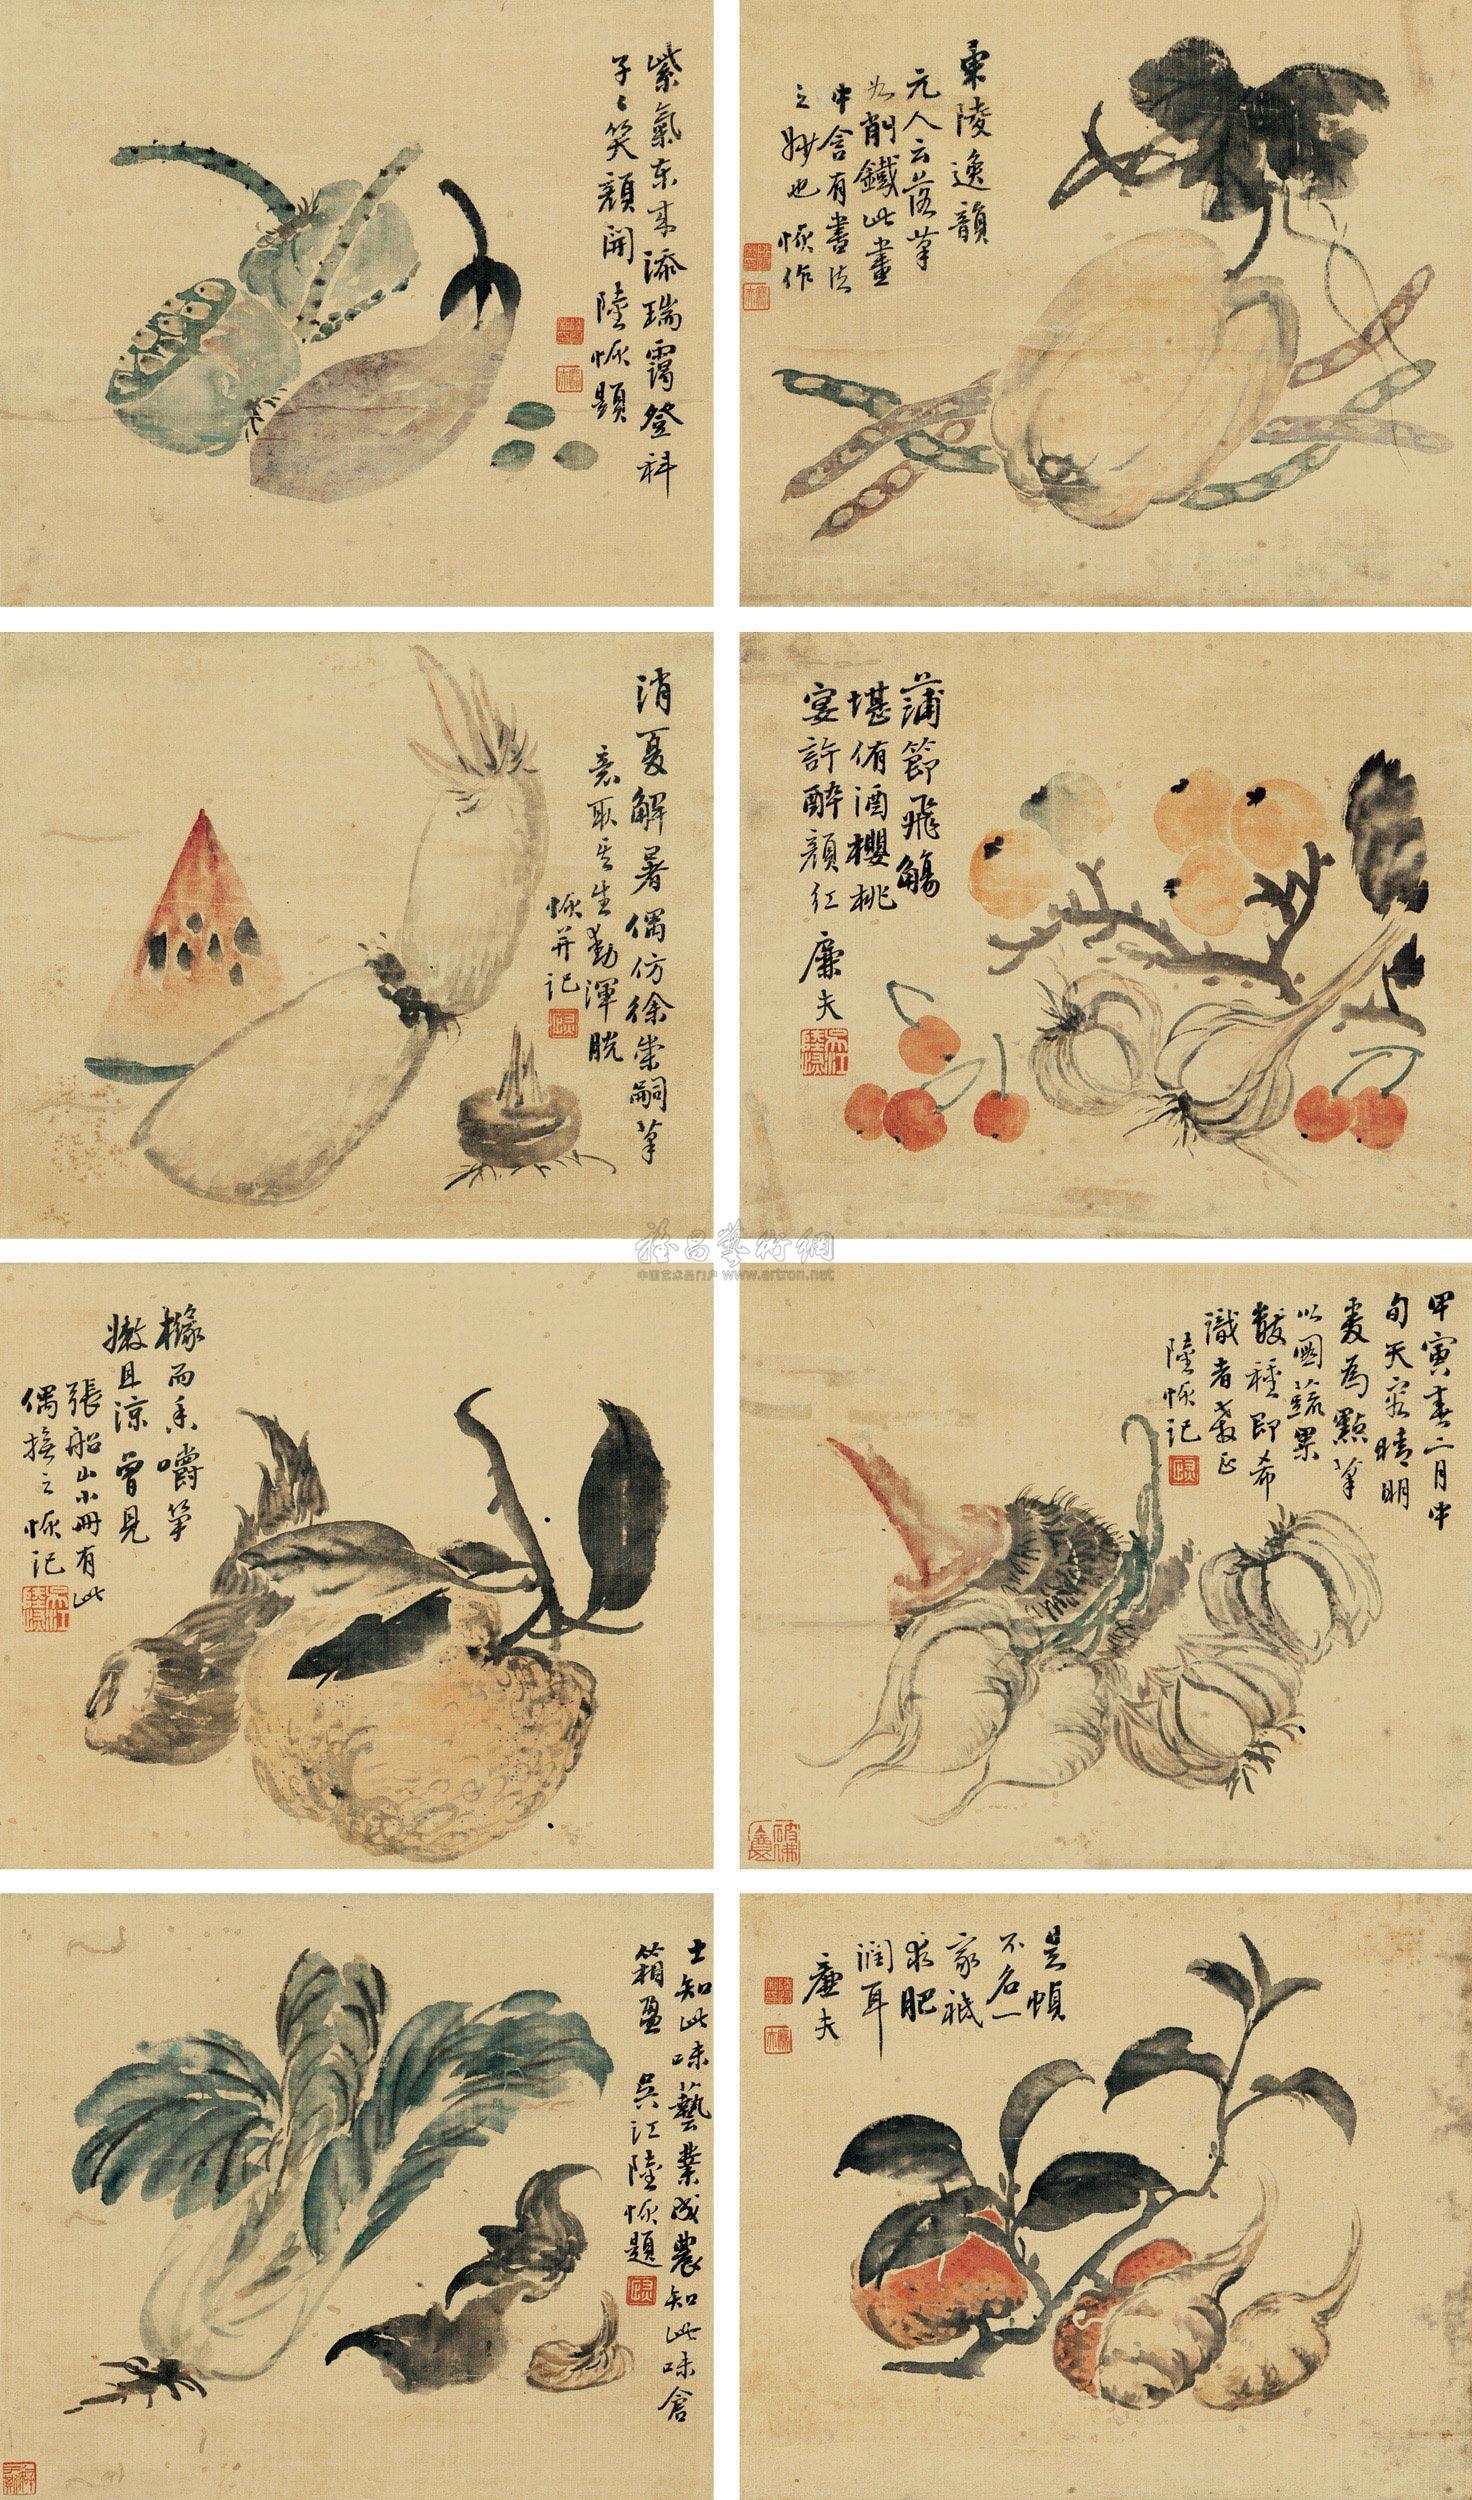 東陵逸韻
元人云落筆
如削鐵此畫
中含有書法
之妙也 恢作
紫氣東來添瑞靄登科
子子笑顏開 陸恢題
蒲節飛觴
堪侑酒櫻桃
宴許醉顏紅 廉夫
吳江陸恢
消夏解暑偶仿徐崇嗣筆
意取其生動渾脫
恢并記
雅昌藝術網
www.artron.net
甲寅春二月中
旬天宇晴明
爰為點筆
以園蔬果
數種即希
識者教正
陸恢記
橼而香嚼筍
嫩且涼曾見
張船山小冊有此
偶撫之恢記
吳江陸恢
是幀
不名一
家祇
求肥
潤耳
廉夫
士知此味藝業成農知此味倉
箱盈 吳江陸恢題